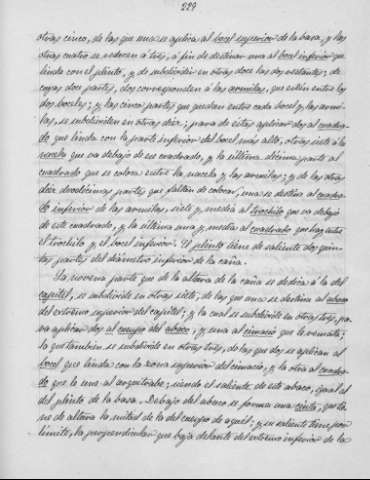 229
otras cinco, de las que una se aplica al bocel superior de la basa, y las
otras cuatro se reducen á tres, á fin de destinar una al bocel inferior que
linda con el plinto, y de subdividir en otras doce las dos restantes; de
cuyas doce partes, dos corresponden á las armilas, que están entre los
dos boceles; y las cinco partes que quedan entre cada bocel y las armi-
las, se subdividen en otras diez; para de estas aplicar dos al cuadra-
do que linda con la parte inferior del bocel mas alto, otras siete á la
nacela que va debajo de ese cuadrado, y la última décima parte al
cuadrado que se coloca entre la nacela y las armilas; y de las otras
diez duodécimas partes que faltan de colocar, una se destina al cuadra-
do inferior de las armilas, siete y media al trochilo que va debajo
de este cuadrado, y la última una y media al cuadrado que hay entre
el trochilo y el bocel inferior. El plinto tiene de saliente dos quin-
tas partes del diámetro inferior de la caña.
La novena parte que de la altura de la caña se dedica á la del
capitel, se subdivide en otras siete, de las que una se destina al abaco
del extremo superior del capitel; y la cual se subdivide en otras tres, pa-
ra aplicar dos al cuerpo del abaco, y una al cimacio que le remata;
la que tambien se subdivide en otras tres, de las que dos se aplican al
bocel que linda con la zona superior del cimacio, y la otra al cuadra-
do que le une al arquitrabe; siendo el saliente de este abaco, igual al
del plinto de la basa. Debajo del abaco se forma una cinta, que tie-
ne de altura la mitad de la del cuerpo de aquel; y su saliente tiene por
límite, la perpendicular que baja delante del extremo inferior de la